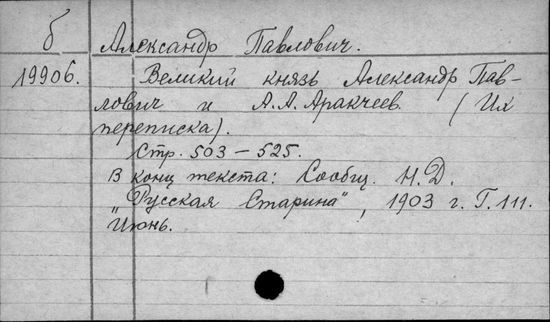 б Александр Павлович.
19906. Великий князь Александр Пав-
лович и А.А. Аракчеев. (Их
переписка).
Стр. 503 – 525.
В конц текста: Сообщ. Н.Д.
„Русская Старина", 1903 г. Т. 111.
Июнь.